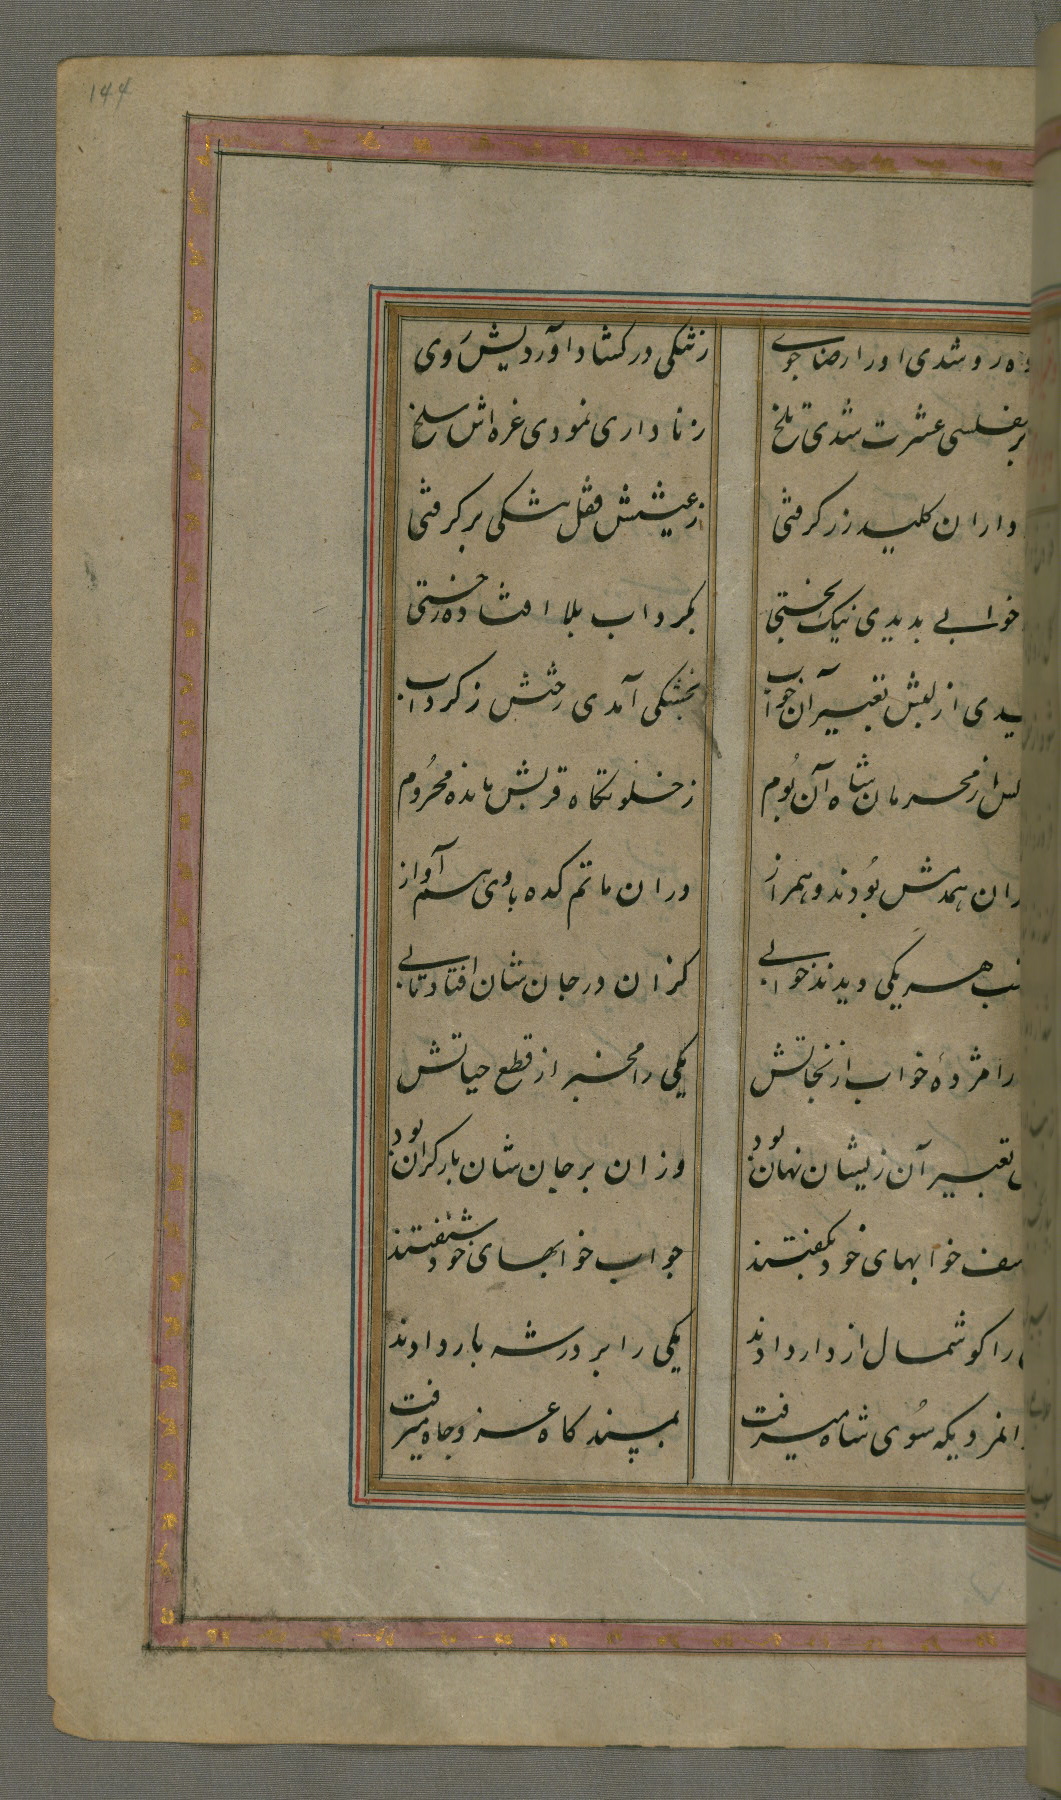 144
ره رو شدی او را رضا جوی ز تنکی در کشاد آوردیش روی
مفلسی عشرت شدی تلخ ز ناداری نمودی غره اش سلخ
داران کلید زر کرفتی ز عیشش قفل تنکی بر کرفتی
خوابی بدیدی نیک بختی بکرداب بلا افتاده رختی
از لبش تعبیر آن خواب بخشکی آمدی رختش ز کرداب
از محرمان شاه آن بوم ز خلوتگاه قربش مانده محروم
همدمش بودند و همراز دران ماتم کده با وی هم آواز
هر یکی دیدند خوابی کزان در جان شان افتاد تابی
را مژدهٔ خواب از نجاتش یکی را مخبر از قطع حیاتش
تعبیر آن زیشان نهان بود وزان بر جان شان بار کران بود
خوابهای خود بکفتند جواب خوابهای خود شنفتند
را کوشمال از دار دادند یکی را بر در شه بار دادند
انمردیکه سوی شاه میرفت بمسند کاه عز و جاه میرفت